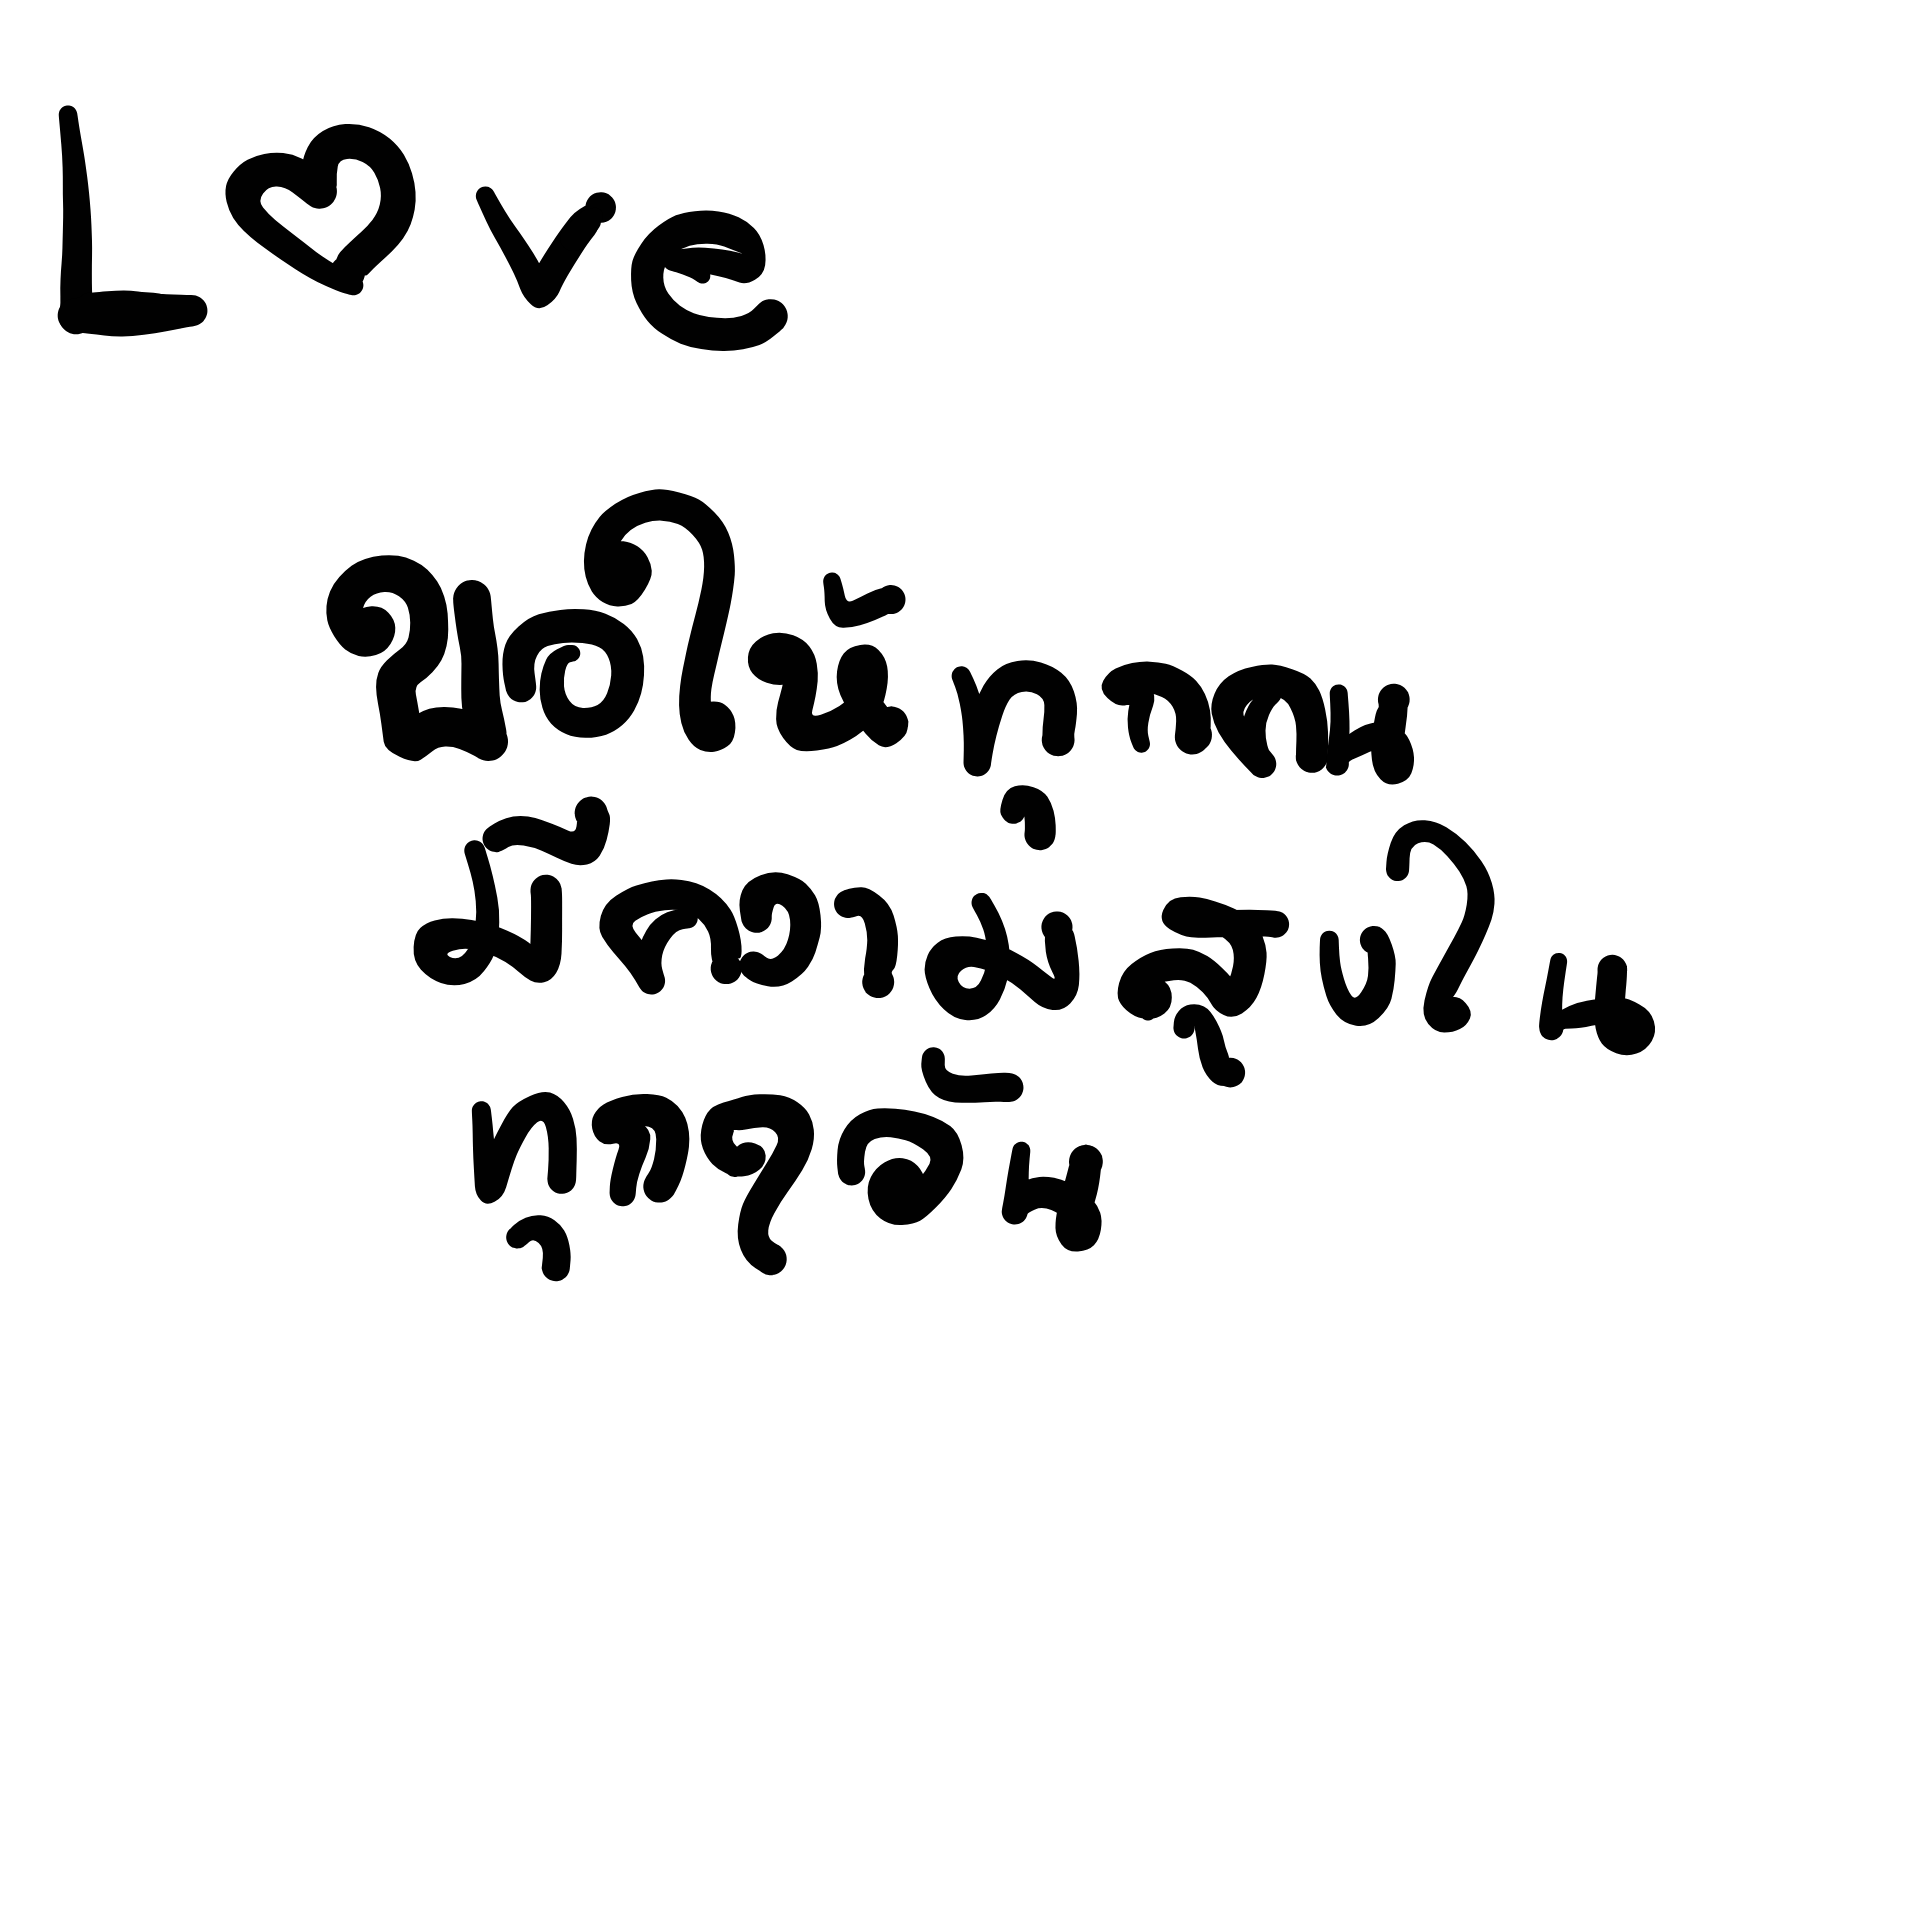 L♡ve
ขอให้ทุกคน
มีความสุขใน
ทุกๆวัน